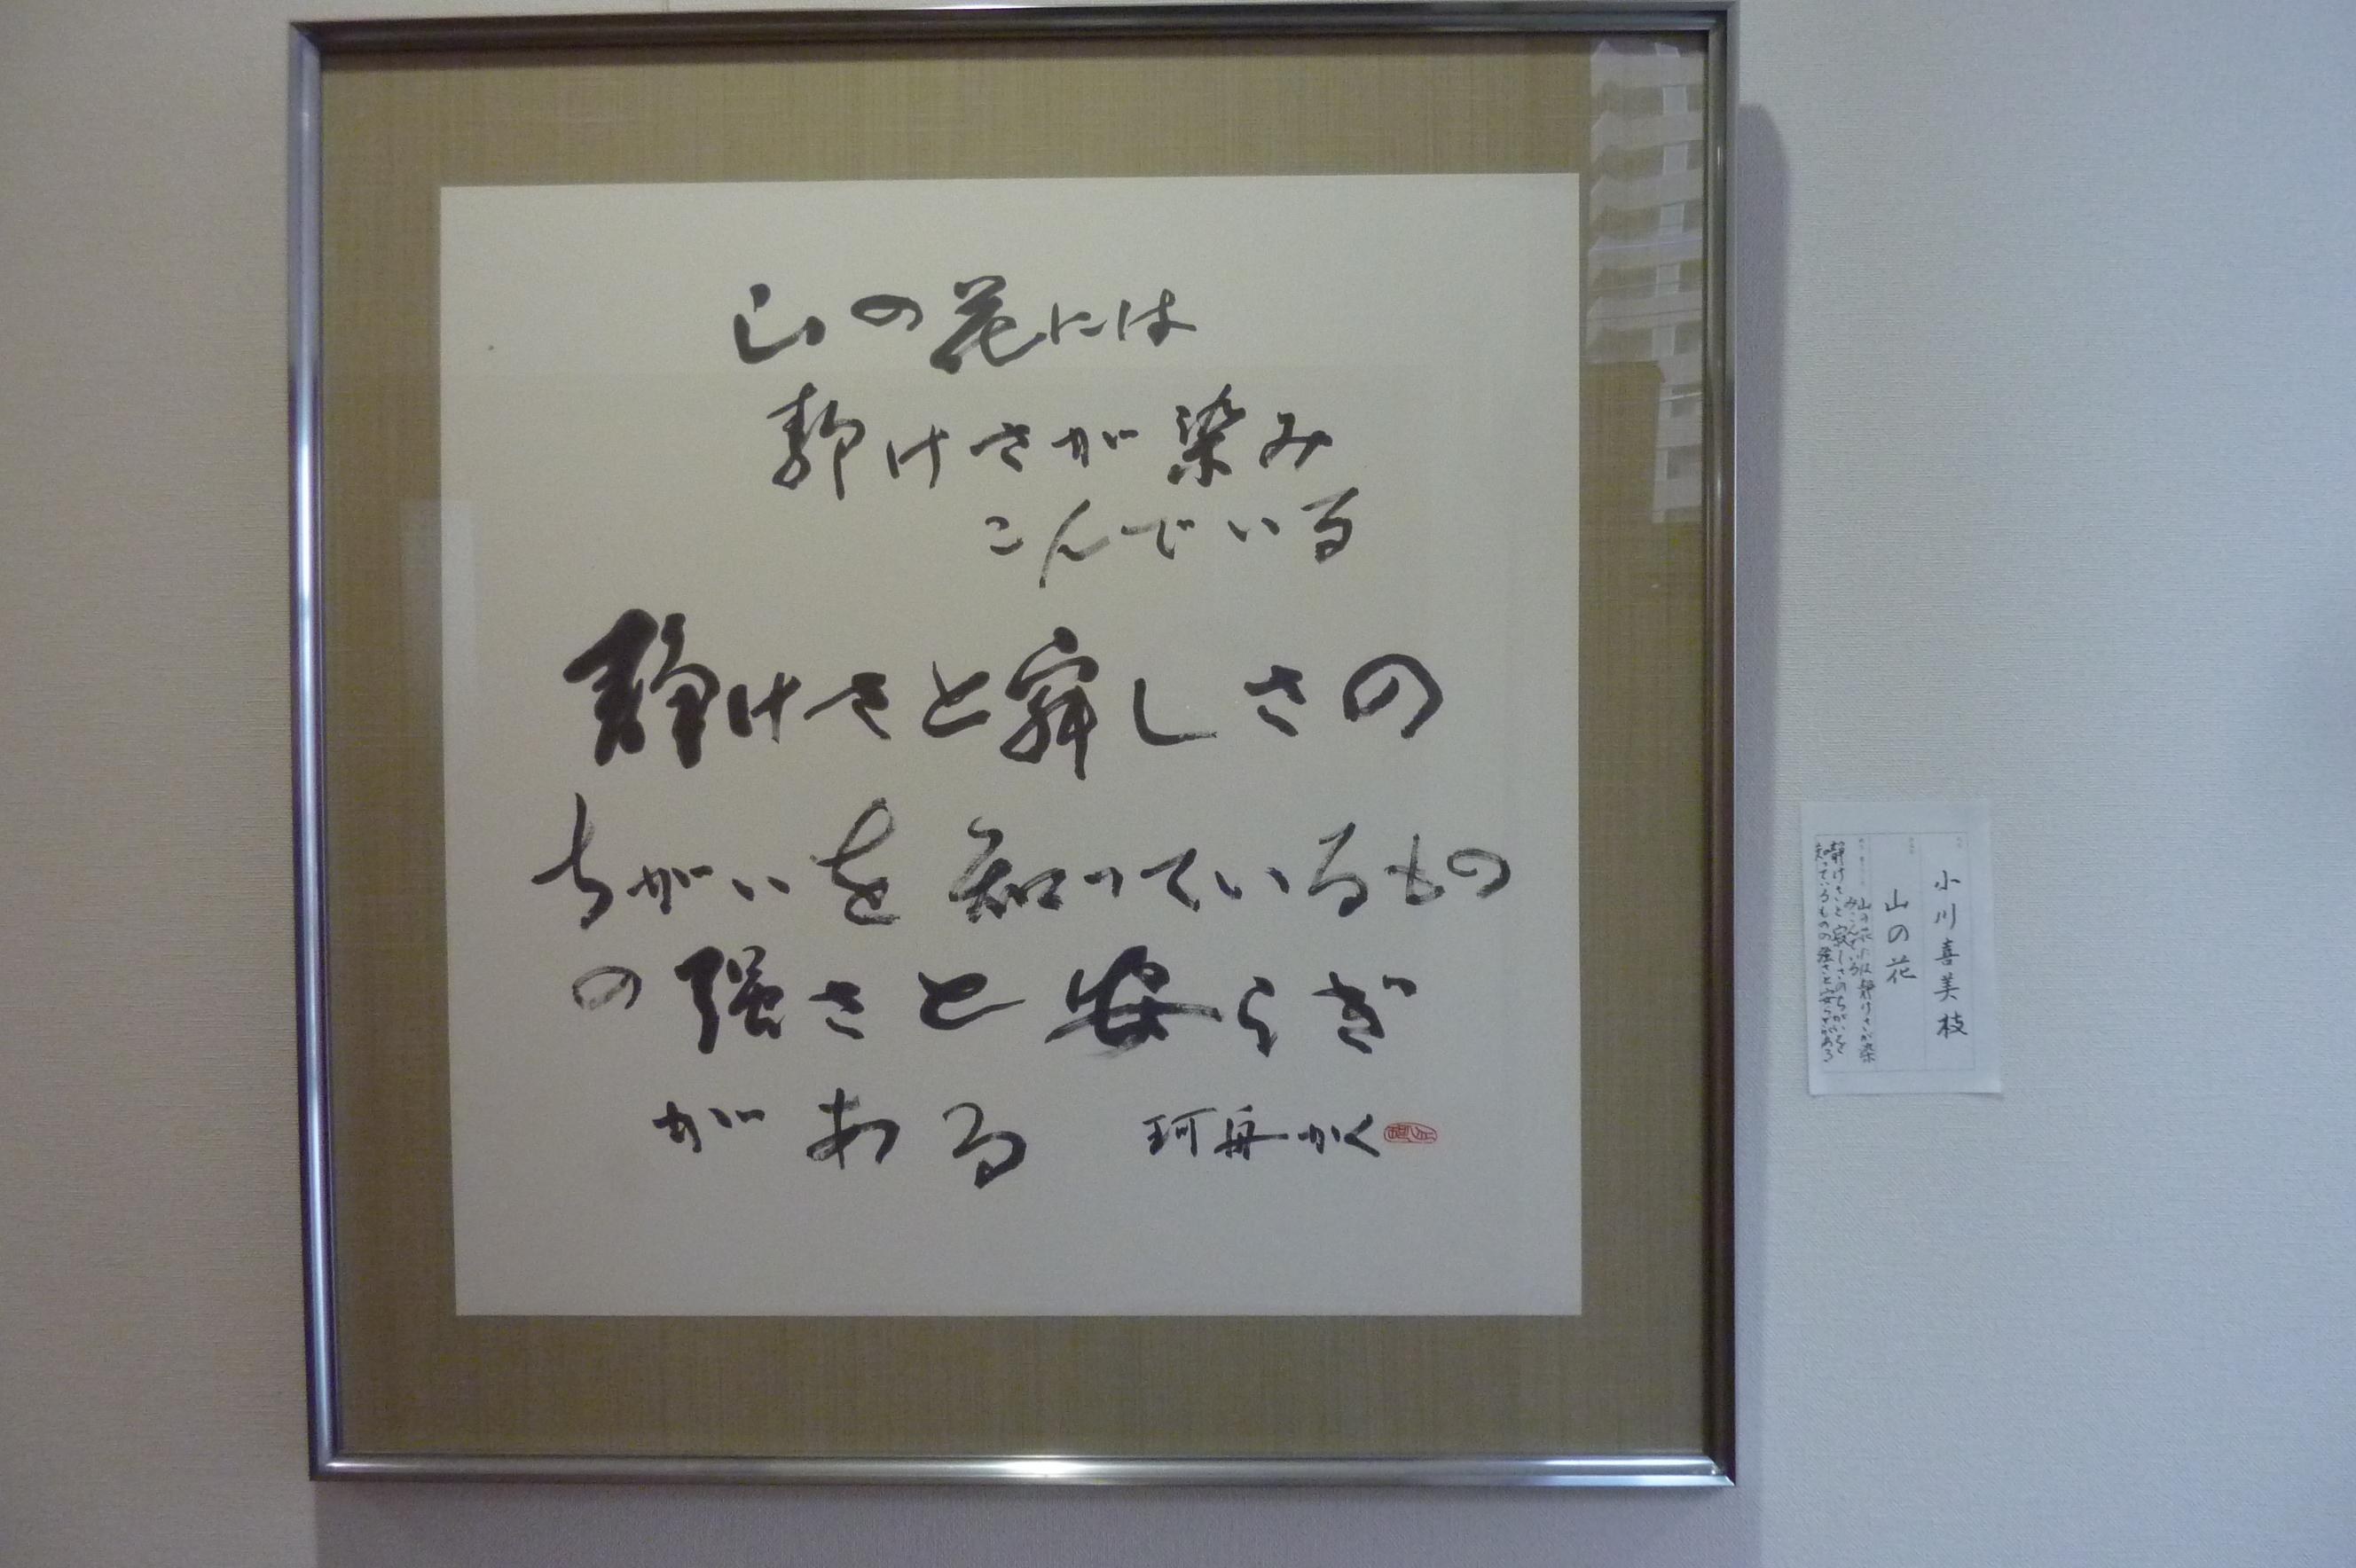 山の花には
静けさが染み
こんでいる
静けさと寂しさの
ちがいを知っているもの
の強さと安らぎ
がある 珂舟かく
小川喜美枝
山の花
山の花には静けさが染
みこんでいる
静けさと寂しさのちがいを
知っているものの強さと安らぎがある